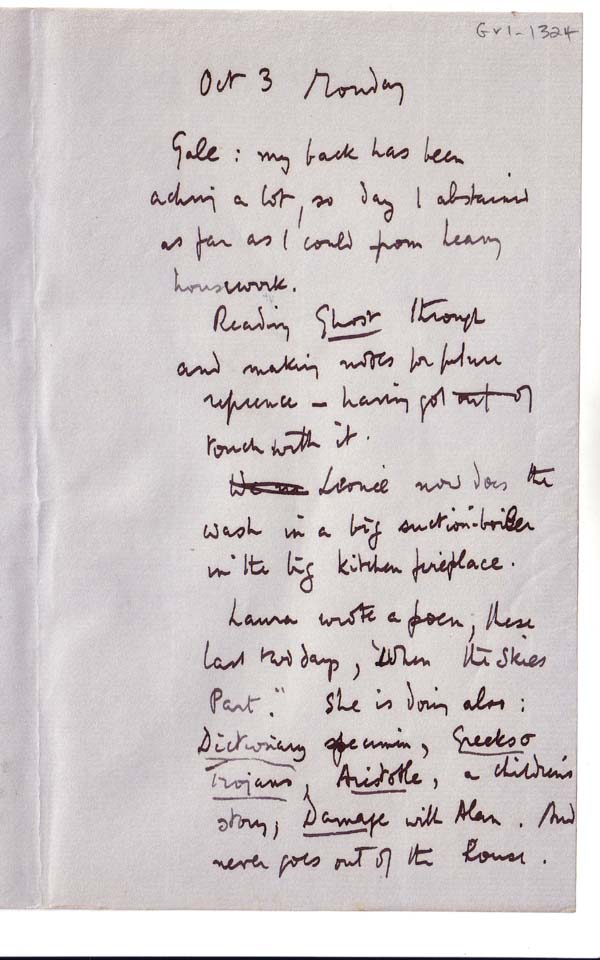 Gv1-1324
Oct 3 Monday
Gale : my back has been
aching a lot, so day I abstained
as far as I could from heavy
housework.
Reading Ghost through
and making notes for future
reference – having got out of
touch with it.
Leonie now does the
wash in a big suction-boiler
in the big kitchen fireplace.
Laura wrote a poem, these
last two days, "When the Skies
Part." She is doing also :
Dictionary specimen, Greeks &
Trojans, Aristotle, a children's
story, Damage with Alan. And
never goes out of the house.